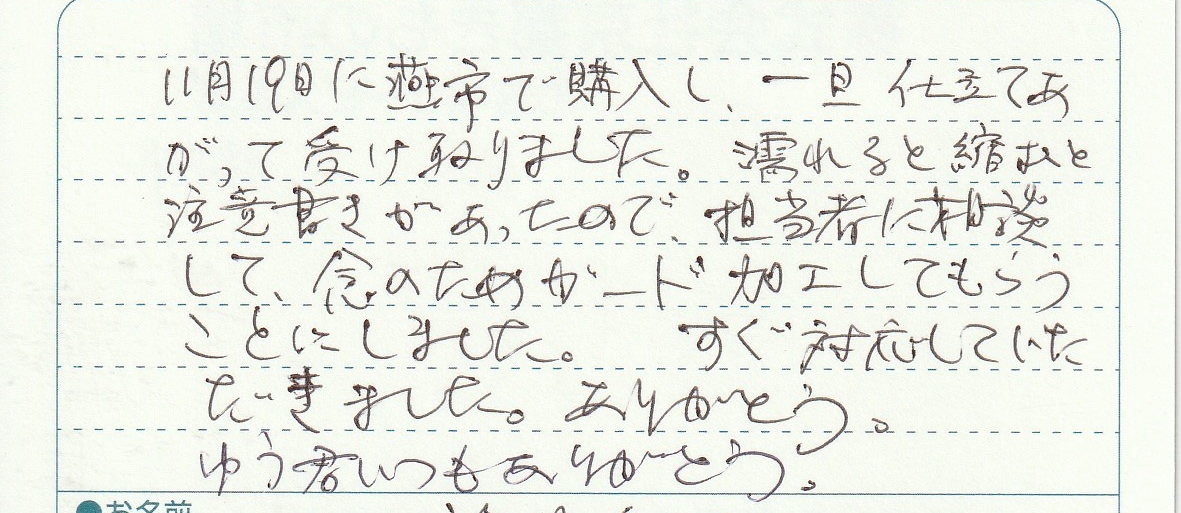 11月19日に燕市で購入し、一旦仕立てあ
がって受け取りました。濡れると縮むと
注意書きがあったので、担当者に相談
して、念のためガード加工してもらう
ことにしました。 すぐ対応していた
だきました。ありがとう。
ゆう君いつもありがとう。
●お名前